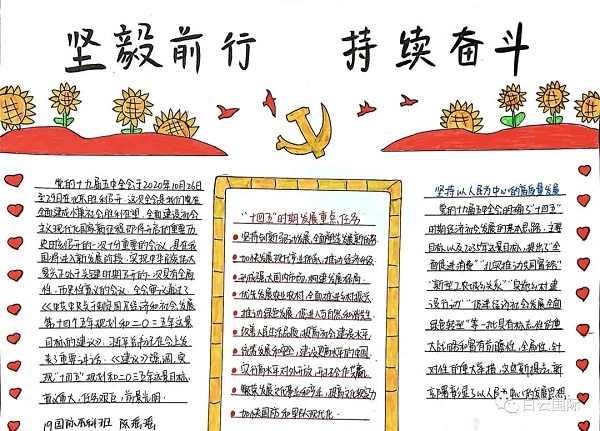 坚毅前行 持续奋斗
党的十九届五中全会于2020年10月26日
至29日在北京胜利召开。这次会是我们党在
全面建成小康社会胜利在望、全面建设社会
主义现代化国家新征程即将开启的重要历
史时刻召开的一次十分重要的会议，是在我
国将进入新发展阶段、实现中华民族伟大
复兴正处于关键时期召开的一次具有全局
性、历史性意义的会议。全会审议通过了
《中共中央关于制定国民经济和社会发展
第十四个五年规划和二〇三五年远景
目标的建议》。习近平总书记在会上发
表了重要讲话。《建议》强调，实
现"十四五"规划和二〇三五年远景目标，
意义重大，任务艰巨，前景光明。
19国际本科班 陈瑶瑶
"十四五"时期发展重点任务
坚持创新驱动发展，全面塑造发展新优势
加快发展现代产业体系，推动经济体系
形成强大国内市场，构建发展格局
优先发展农业农村，全面推进乡村振兴
推动绿色发展，促进人与自然和谐共生
改善人民生活品质，提高社会建设水平
统筹发展和安全，建设更高水平的平安中国
实行高水平对外开放，开拓合作共赢
繁荣发展文化事业和产业，提高文化软实力
加快国防和军队现代化
坚持以人民为中心的高质量发展
党的十九届五中全会明确了"十四五"
时期经济社会发展的基本思路、主要
目标以及2035年远景目标，提出了"全
面促进消费""扎实推动共同富裕"
"新型工农城乡关系""实施乡村建
设行动""促进经济社会发展全面
绿色转型"等一批具有标志性的重
大战略，富有前瞻性、全局性、针
对性的重大举措，这些新提法、新
部署彰显了以人民为中心的发展思想
白云国际